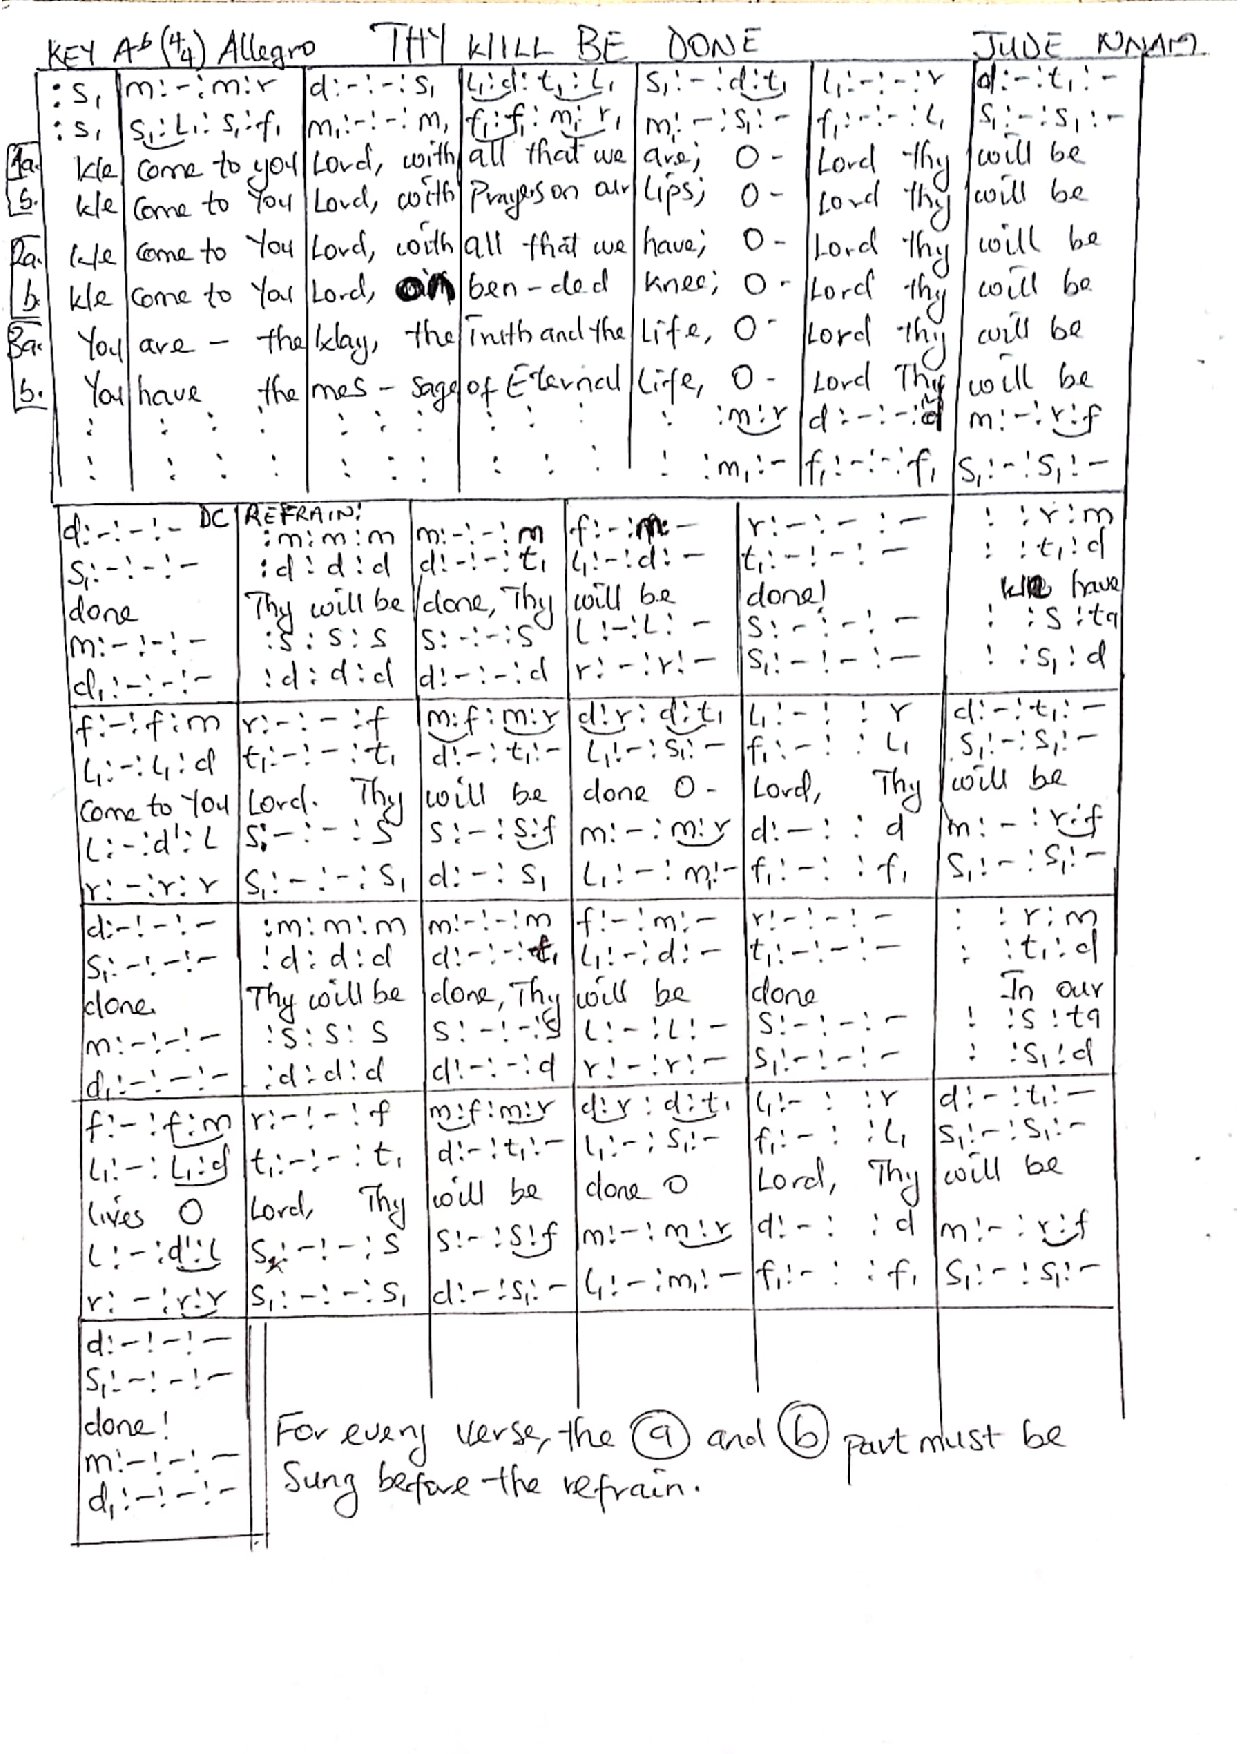 KEY Ab (4/4) Allegro THY WILL BE DONE JUDE NNAM
:s₁ | m:-:m:r | d:-:-:s₁ | l₁:d:t₁:l₁ | s₁:-:d:t₁ | l₁:-:-:r | d:-:t₁:-
:s₁ | s₁:l₁:s₁:f₁ | m₁:-:-:m₁ | f₁:f₁:m₁:r₁ | m₁:-:s₁:- | f₁:-:-:l₁ | s₁:-:s₁:-
1a. We come to you Lord, with all that we are; O- Lord thy will be
b. We come to You Lord, with Prayers on our lips; O- Lord thy will be
2a. We come to You Lord, with all that we have; O- Lord thy will be
b. We come to You Lord, on ben-ded knee; O- Lord thy will be
3a. You are - the Way, the Truth and the Life, O- Lord thy will be
b. You have the mes-sage of Eternal Life, O- Lord Thy will be
: | : : : | : : : | : : : | : :m:r | d:-:-:d | m:-:r:f
: | : : : | : : : | : : : | : :m₁:- | f₁:-:-:f₁ | s₁:-:s₁:-
d:-:-:- DC | REFRAIN: :m:m:m | m:-:-:m | f:-:m:- | r:-:-:- | : :r:m
s₁:-:-:- | :d:d:d | d:-:-:t₁ | l₁:-:d:- | t₁:-:-:- | : :t₁:d
done Thy will be done, Thy will be done! We have
m:-:-:- | :s:s:s | s:-:-:s | l:-:l:- | s:-:-:- | : :s:ta
d₁:-:-:- | :d:d:d | d:-:-:d | r:-:r:- | s₁:-:-:- | : :s₁:d
f:-:f:m | r:-:-:f | m:f:m:r | d:r:d:t₁ | l₁:-: :r | d:-:t₁:-
l₁:-:l₁:d | t₁:-:-:t₁ | d:-:t₁:- | l₁:-:s₁:- | f₁:-: :l₁ | s₁:-:s₁:-
Come to You Lord. Thy will be done O- Lord, Thy will be
l:-:d':l | s:-:-:s | s:-:s:f | m:-:m:r | d:-: :d | m:-:r:f
r:-:r:r | s₁:-:-:s₁ | d:-:s₁ | l₁:-:m₁:- | f₁:-: :f₁ | s₁:-:s₁:-
d:-:-:- | :m:m:m | m:-:-:m | f:-:m:- | r:-:-:- | : :r:m
s₁:-:-:- | :d:d:d | d:-:-:t₁ | l₁:-:d:- | t₁:-:-:- | : :t₁:d
done. Thy will be done, Thy will be done In our
m:-:-:- | :s:s:s | s:-:-:s | l:-:l:- | s:-:-:- | : :s:ta
d₁:-:-:- | :d:d:d | d:-:-:d | r:-:r:- | s₁:-:-:- | : :s₁:d
f:-:f:m | r:-:-:f | m:f:m:r | d:r:d:t₁ | l₁:-: :r | d:-:t₁:-
l₁:-:l₁:d | t₁:-:-:t₁ | d:-:t₁:- | l₁:-:s₁:- | f₁:-: :l₁ | s₁:-:s₁:-
lives O Lord, Thy will be done O Lord, Thy will be
l:-:d':l | s:-:-:s | s:-:s:f | m:-:m:r | d:-: :d | m:-:r:f
r:-:r:r | s₁:-:-:s₁ | d:-:s₁:- | l₁:-:m₁:- | f₁:-: :f₁ | s₁:-:s₁:-
d:-:-:-
s₁:-:-:-
done!
m:-:-:-
d₁:-:-:-
For every verse, the a and b part must be
Sung before the refrain.